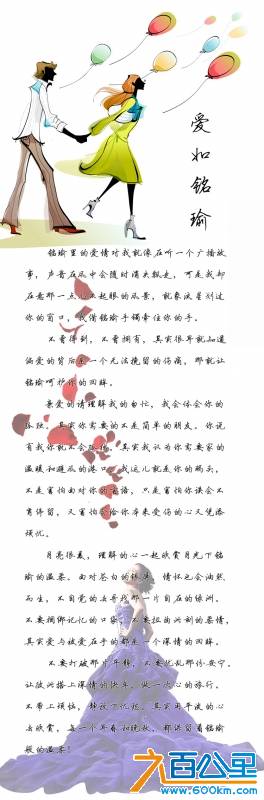 爱如铭瑜
铭瑜里的爱情对我就像在听一个广播故
事，声音在风中会随时消失飘走，可是我却
在意那一点心不起眼的风景，就象流星划过
你的窗口，我借铭瑜手镯牵住你的手。
不看得到，不看拥有，其实很早就知道
偏爱的背后是一个无法挽留的伤痛，那就让
铭瑜呵护你的回眸。
亲爱的请理解我的匆忙，我会体会你的
孤独，其实你需要的不是简单的朋友，你说
有我你就不会孤独，其实我认为你需要家的
温暖和避风的港口，我远儿就是你的码头，
不是害怕面对你的，只是害怕你误会不
肯停留，又害怕会给你本来受伤的心又凭添
烦忧。
月亮很美，理解的心一起欣赏月光下铭
瑜的温柔。面对苍白的，情怀也会油然
而生，不自觉的去寻找那一片自在的绿洲。
不要捆绑记忆的口袋，不要扭曲泪制的表情，
其实爱与被爱在乎的都是一个深情的回眸。
不要打破那片平静，不要扰乱那份安宁
让欣搭上深情的快车，做一次心的旅行，
不带上烦恼，释放了忧愁，其实用平淡的心
去欣赏，每一个开春和晚秋，都洋溢着铭瑜
般的温柔！
六百公里
www.600km.com